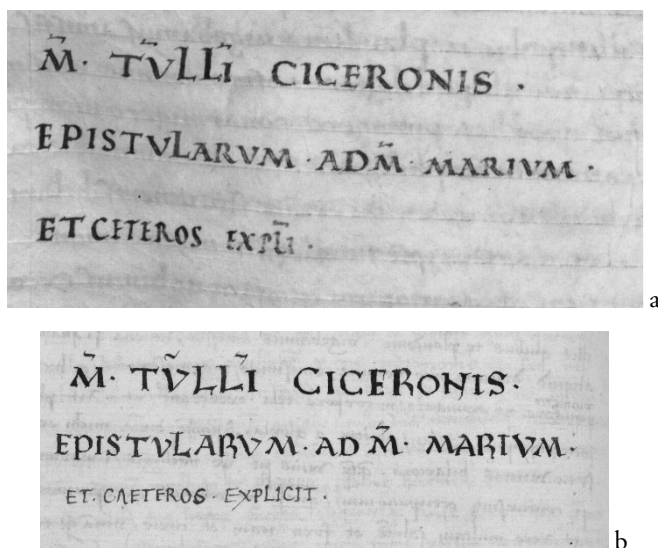 M̃· TṼLLĨ CICERONIS ·
EPISTVLARVM · AD M̃ · MARIVM ·
ET CETEROS EXPLĪ ·
a
M̃· TṼLLĨ CICERONIS ·
EPISTVLARVM · AD M̃ · MARIVM ·
ET · CAETEROS · EXPLICIT ·
b